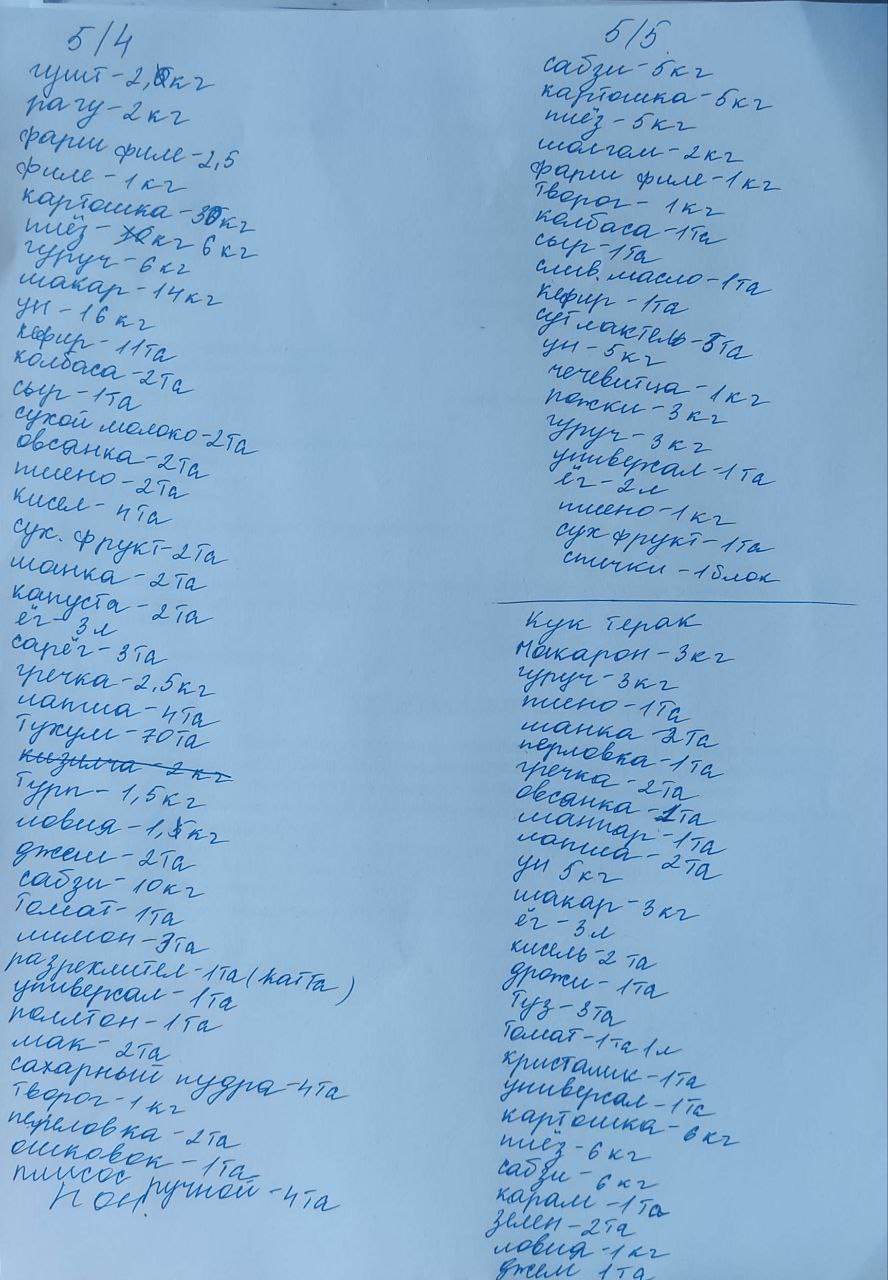 5/4
гушт-2,5кг
рагу-2кг
фарш филе-2,5
филе-1кг
картошка-30кг
пиёз-10кг 6кг
гуруч-6кг
шакар-14кг
ун-16кг
кефир-11та
колбаса-2та
сыр-1та
сухой молоко-2та
овсянка-2та
пшено-2та
кисел-4та
сух. фрукт-2та
манка-2та
капуста-2та
ёг-3л
сарёг-3та
гречка-2,5кг
лапша-4та
тухум-70та
кизилча-2кг
турп-1,5кг
ловия-1,5кг
джем-2та
сабзи-10кг
томат-1та
лимон-3та
разрехлител-1та (катта)
универсал-1та
мак-2та
сахарный пудра-4та
творог-1кг
перловка-2та
ошковок-1та
ручной-4та
5/5
сабзи-5кг
картошка-5кг
пиёз-5кг
шолгом-2кг
фарш филе-1кг
творог-1кг
колбаса-1та
сыр-1та
слив. масло-1та
кефир-1та
сут лактель-3та
ун-5кг
чечевитца-1кг
рожки-3кг
гуруч-3кг
универсал-1та
ёг-2л
пшено-1кг
сух фрукт-1та
спички-1блок
Кук терак
макарон-3кг
гуруч-3кг
пшено-1та
манка-2та
перловка-1та
гречка-2та
овсянка-1та
маппар-1та
лапша-2та
ун 5кг
шакар-3кг
ёг-3л
кисель-2та
дрожи-1та
туз-3та
томат-1та 1л
кристалик-1та
универсал-1та
картошка-6кг
пиёз-6кг
сабзи-6кг
карам-1та
зелен-2та
ловия-1кг
джем 1та